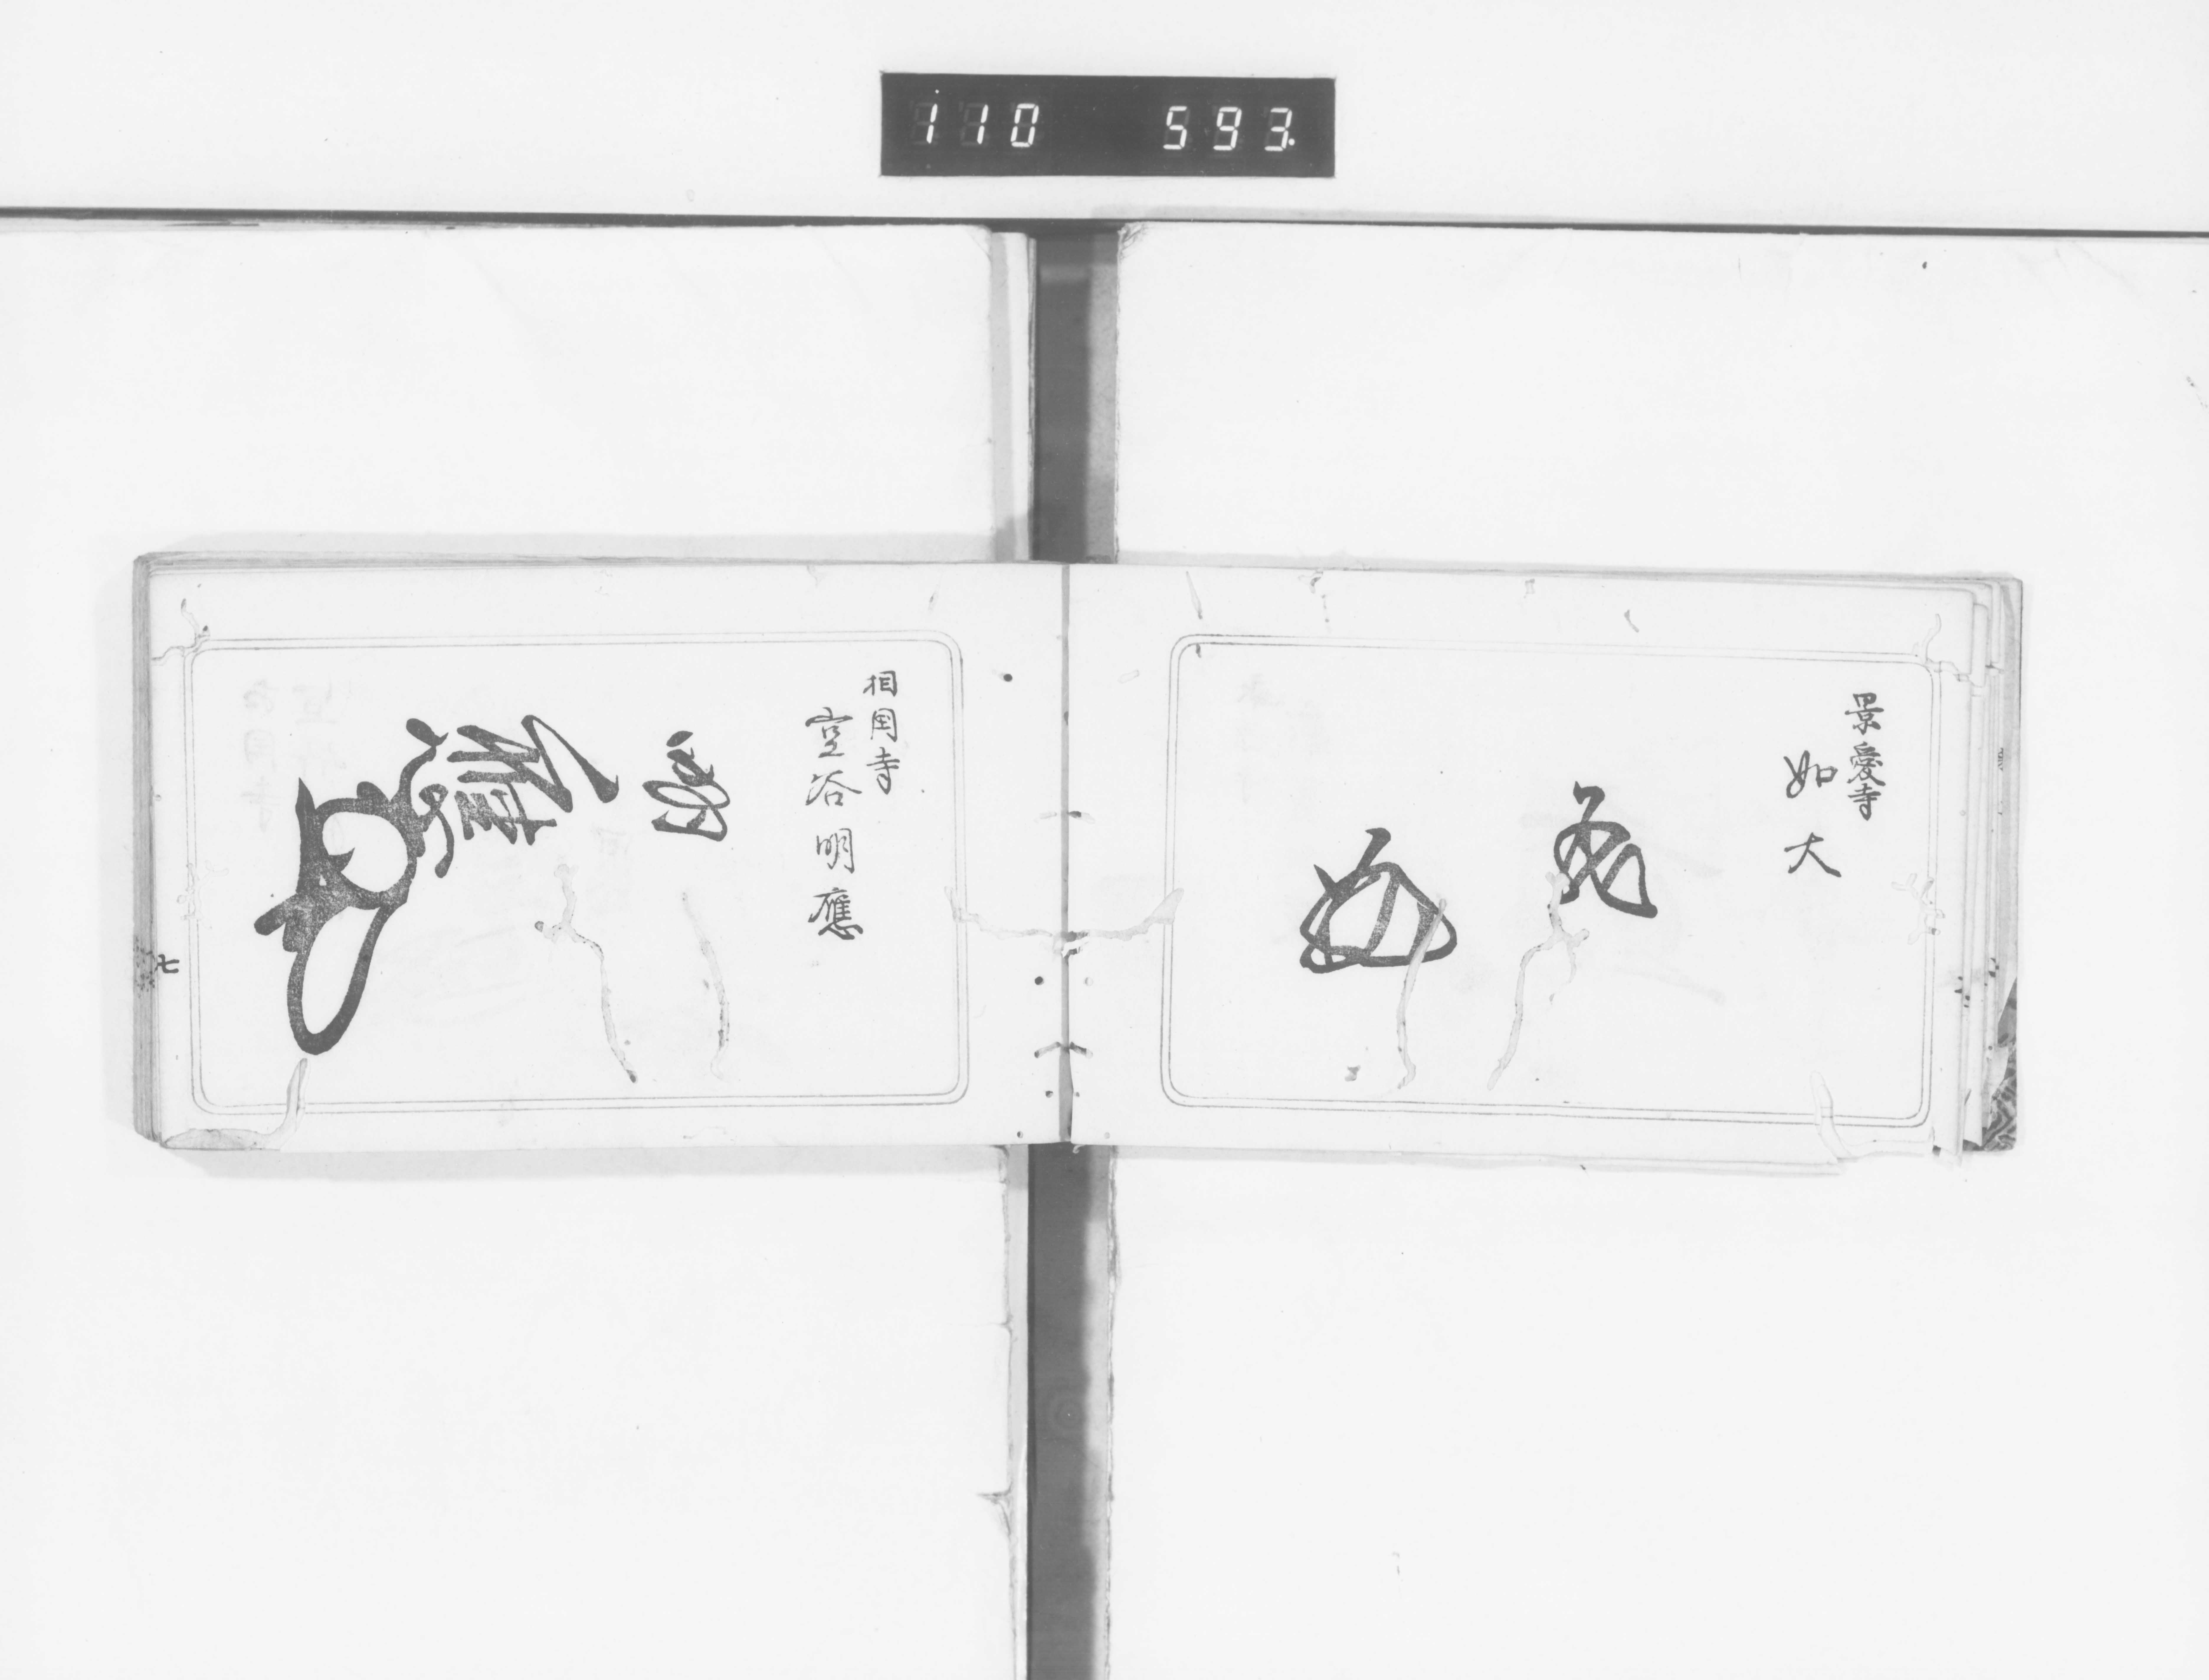 110 593
景愛寺
如大
相国寺
空谷明應
明
應
七